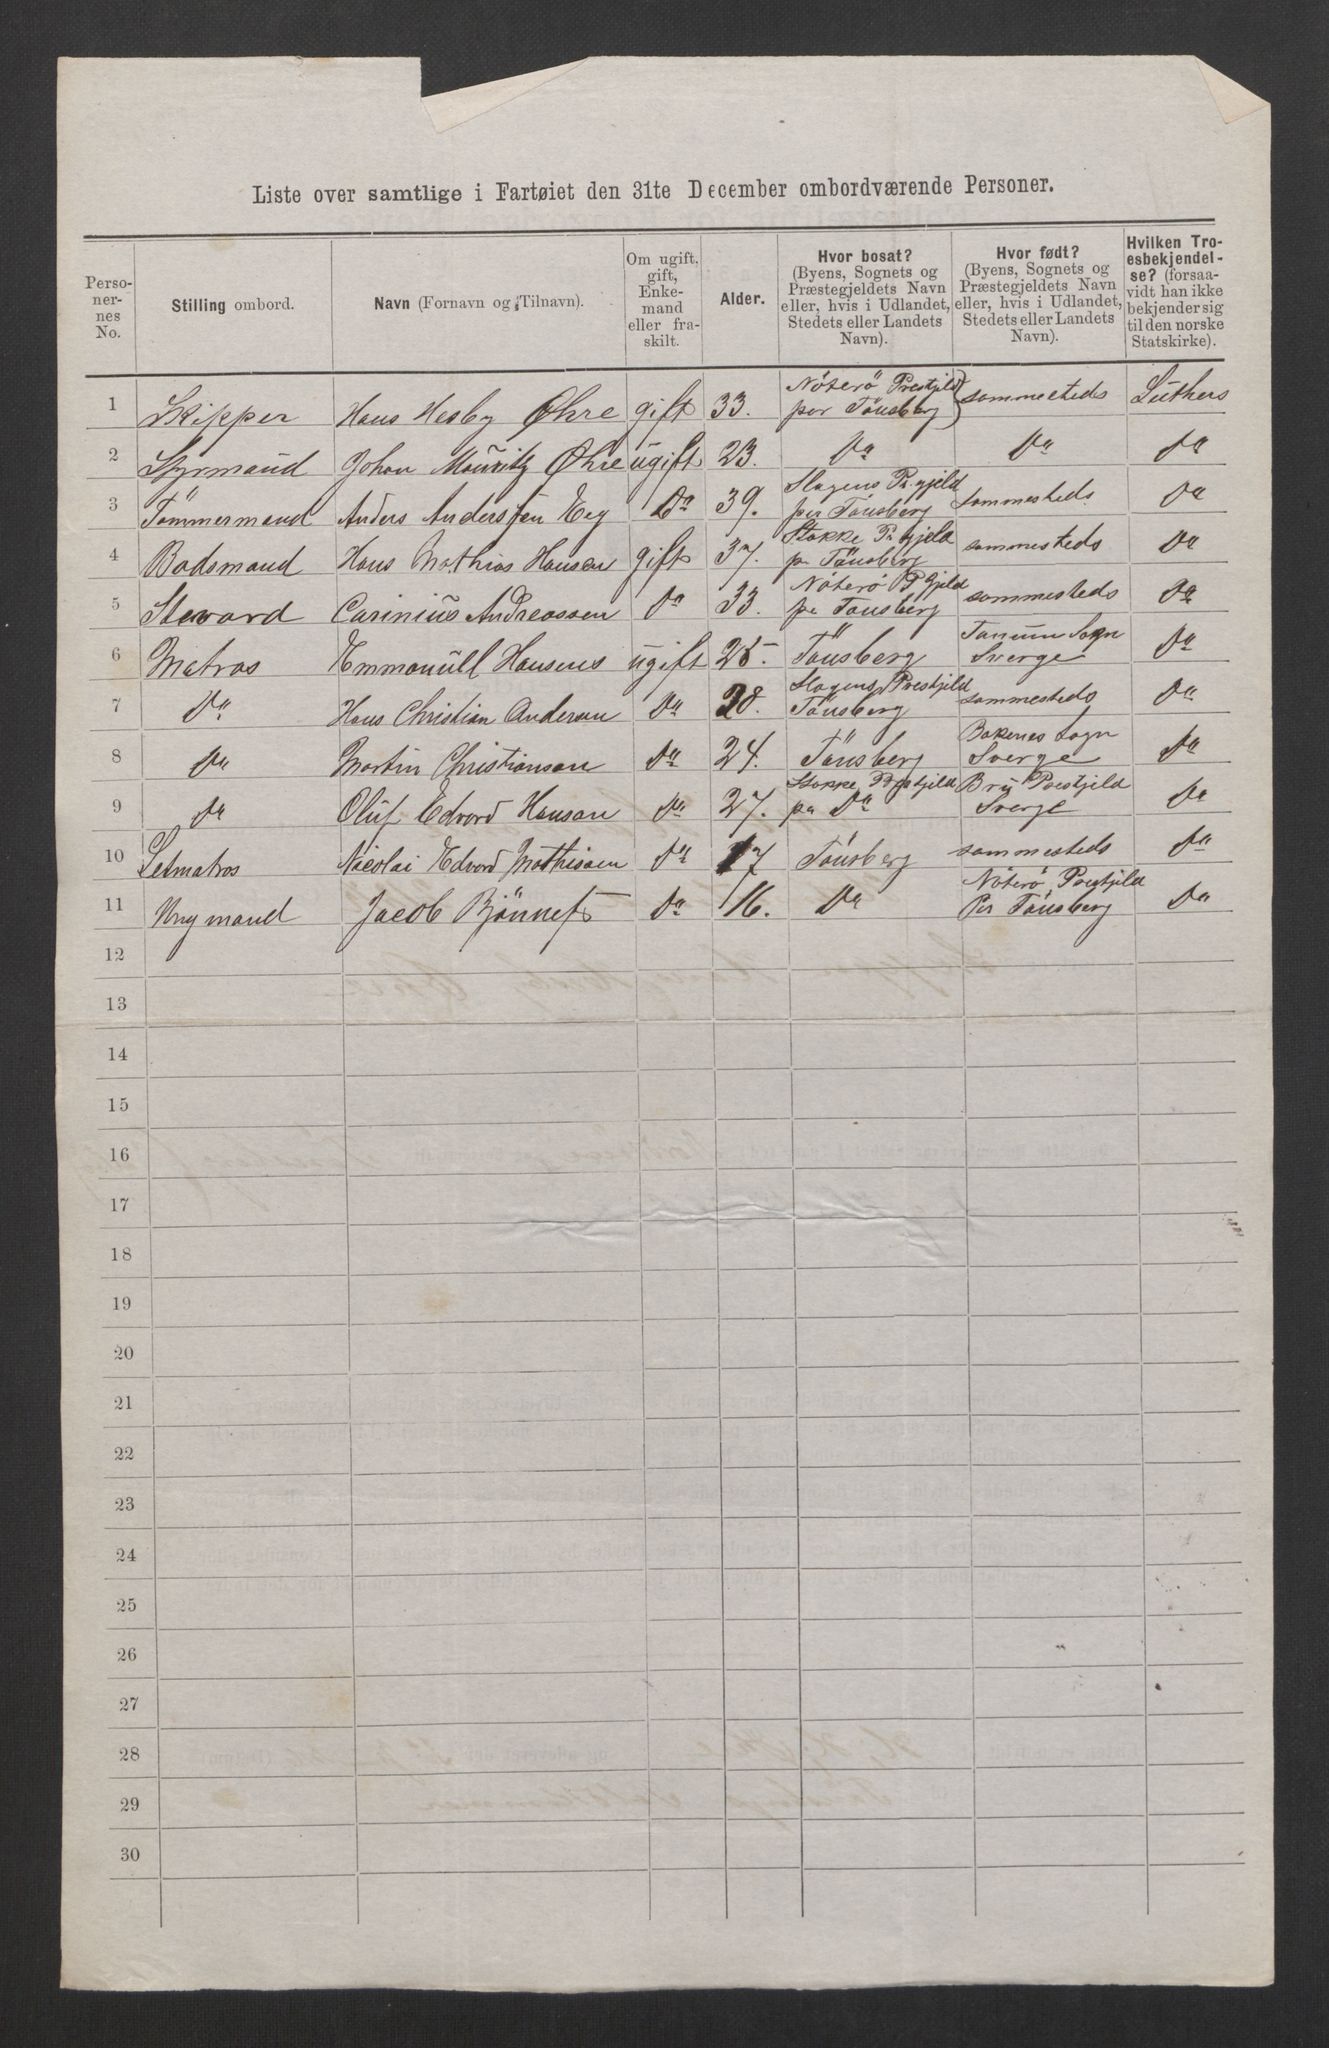 Liste over samtlige i Fartøiet den 31te December ombordværende Personer.
Perso-
ner-
nes
No.
Stilling ombord.
Navn (Fornavn og Tilnavn).
Om ugift,
gift,
Enke-
mand
eller fra-
skilt.
Alder.
Hvor bosat?
(Byens, Sognets og
Præstegjeldets Navn
eller, hvis i Udlandet,
Stedets eller Landets
Navn).
Hvor født?
(Byens, Sognets og
Præstegjeldets Navn
eller, hvis i Udlandet,
Stedets eller Landets
Navn).
Hvilken Tro-
esbekjendel-
se? (forsaa-
vidt han ikke
bekjender sig
til den norske
Statskirke).
1 Skipper Hans Hesby Øhre gift 33. Nöterö Prestjeld per Tönsberg sammesteds Luthers
2 Styrmand Johan Mouritz Øhre ugift 23. Do Do Do
3 Tömmermand Anders Anderssen Eeg Do 39. Slagens Pr.gjeld per Tönsberg sammesteds Do
4 Badsmand Hans Mathias Hansen gift 37. Stokke Pr gjeld pr Tönsberg sammesteds Do
5 Steward Carinius Andreassen Do 33. Nöterö P Gjeld pr Tönsberg sammesteds Do
6 Matros Emmanuell Hansens ugift 25. Tönsberg Tanum Sogn Sverge Do
7 Do Hans Christian Andersen Do 28. Slagens Prestjeld Tönsberg sammesteds Do
8 Do Martin Christiansen Do 24. Tönsberg Bakenes sogn Sverge Do
9 Do Oluf Edvard Hansen Do 27. Stokke Prestjeld pr Do Bru Prestjeld Sverge Do
10 Letmatros Nicolai Edvard Mathisen Do 17 Tönsberg sammesteds Do
11 Ungmand Jacob Bjönnes Do 16. Do Nöterö Prestjeld Per Tönsberg Do
12
13
14
15
16
17
18
19
20
21
22
23
24
25
26
27
28
29
30